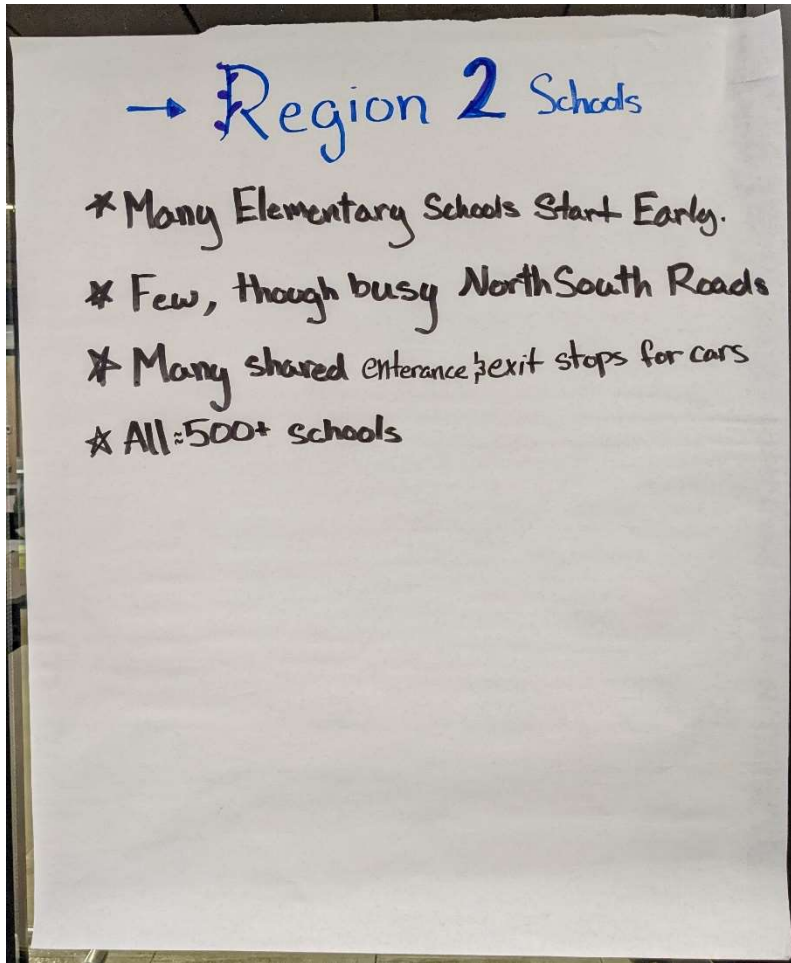 → Region 2 Schools
* Many Elementary Schools Start Early.
* Few, though busy North South Roads
* Many shared enterance & exit stops for cars
* All ≈ 500+ schools